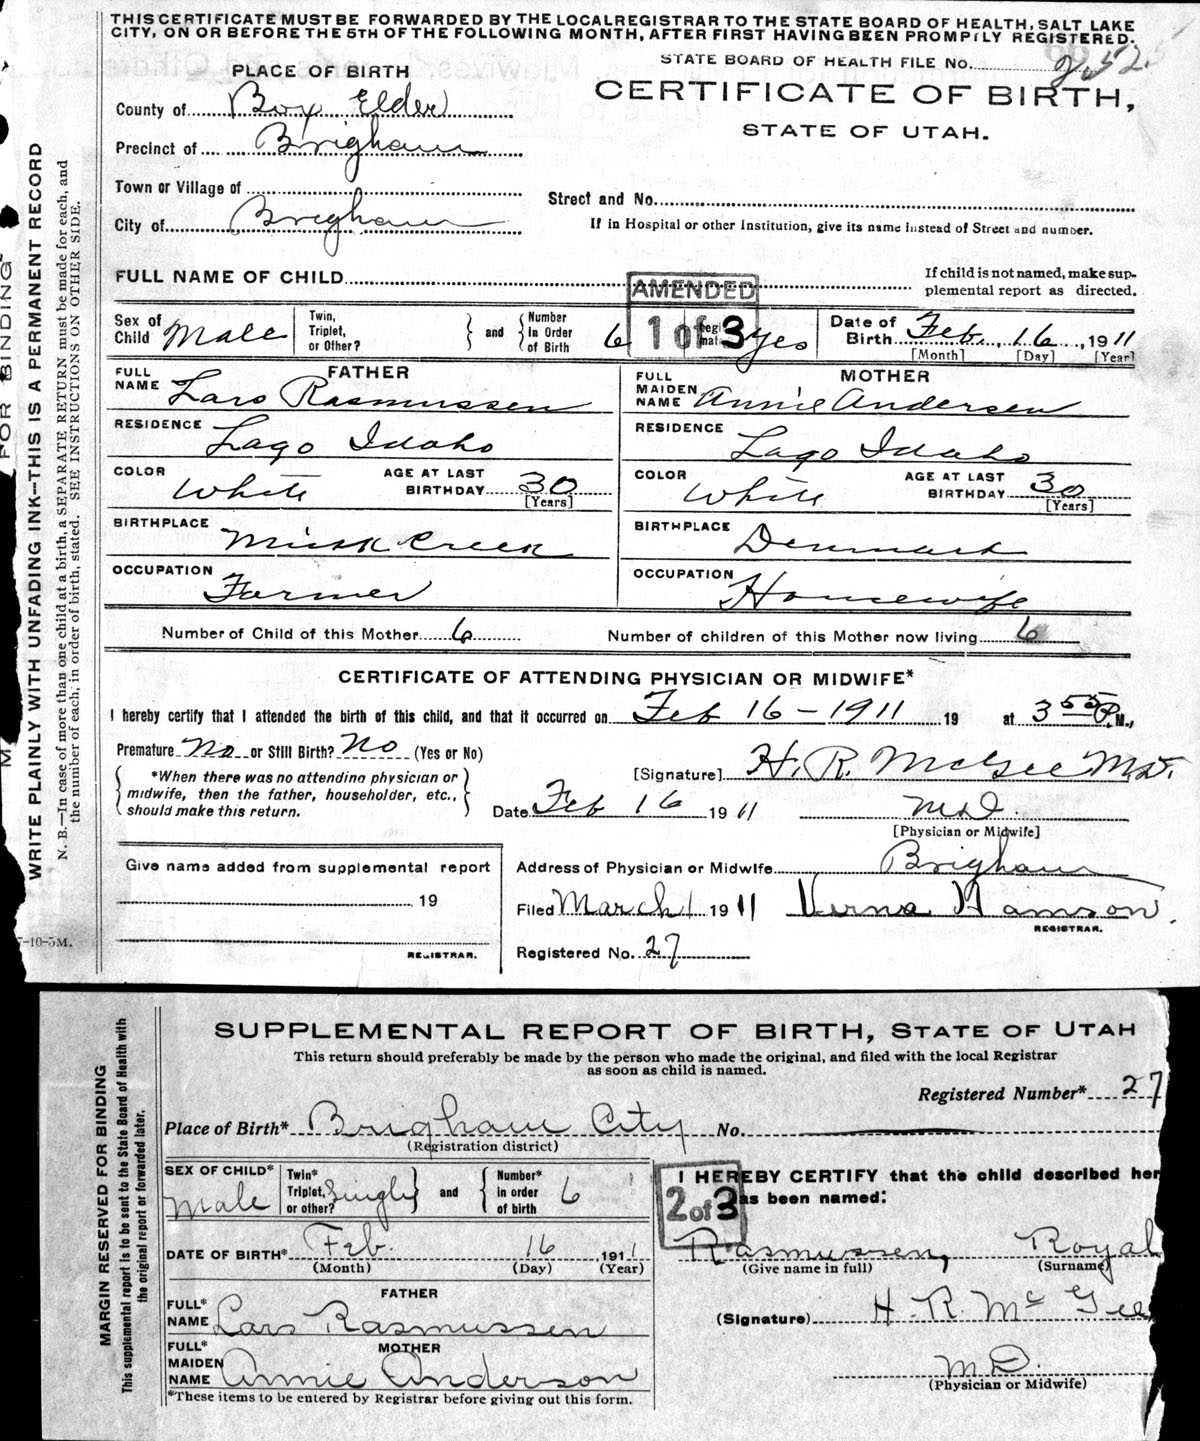 THIS CERTIFICATE MUST BE FORWARDED BY THE LOCAL REGISTRAR TO THE STATE BOARD OF HEALTH, SALT LAKE
CITY, ON OR BEFORE THE 5TH OF THE FOLLOWING MONTH, AFTER FIRST HAVING BEEN PROMPTLY REGISTERED.
STATE BOARD OF HEALTH FILE NO. 2525
PLACE OF BIRTH
CERTIFICATE OF BIRTH,
STATE OF UTAH.
County of Box Elder
Precinct of Brigham
Town or Village of
Street and No.
City of Brigham
If in Hospital or other Institution, give its name instead of Street and number.
FULL NAME OF CHILD
If child is not named, make sup-
plemental report as directed.
AMENDED
1 of 3
Sex of Child Male
Twin, Triplet, or Other?
and
Number in Order of Birth 6
yes
Date of Birth Feb. 16, 1911
[Month] [Day] [Year]
FATHER
FULL NAME Lars Rasmussen
MOTHER
FULL MAIDEN NAME Annie Andersen
RESIDENCE Lago Idaho
RESIDENCE Lago Idaho
COLOR White AGE AT LAST BIRTHDAY 30 [Years]
COLOR White AGE AT LAST BIRTHDAY 30 [Years]
BIRTHPLACE Mink Creek
BIRTHPLACE Denmark
OCCUPATION Farmer
OCCUPATION Housewife
Number of Child of this Mother 6 Number of children of this Mother now living 6
CERTIFICATE OF ATTENDING PHYSICIAN OR MIDWIFE*
I hereby certify that I attended the birth of this child, and that it occurred on Feb 16 - 1911 19 at 3 55 P.M.,
Premature No or Still Birth? No (Yes or No)
*When there was no attending physician or
midwife, then the father, householder, etc.,
should make this return.
[Signature] H. R. McGee M.D.
Date Feb 16 1911 M D.
[Physician or Midwife]
Give name added from supplemental report
19
REGISTRAR.
Address of Physician or Midwife Brigham
Filed March 1 1911 Verna Hamson.
REGISTRAR.
Registered No. 27
7-10-5M.
FOR BINDING
WRITE PLAINLY WITH UNFADING INK—THIS IS A PERMANENT RECORD
N. B.—In case of more than one child at a birth, a SEPARATE RETURN must be made for each, and
the number of each, in order of birth, stated. SEE INSTRUCTIONS ON OTHER SIDE.
SUPPLEMENTAL REPORT OF BIRTH, STATE OF UTAH
This return should preferably be made by the person who made the original, and filed with the local Registrar
as soon as child is named.
Registered Number* 27
Place of Birth* Brigham City No.
(Registration district)
SEX OF CHILD* Male
Twin* Triplet, or other? Single
and
Number* in order of birth 6
DATE OF BIRTH* Feb. 16 1911
(Month) (Day) (Year)
FATHER
FULL* NAME Lars Rasmussen
MOTHER
FULL* MAIDEN NAME Annie Anderson
*These items to be entered by Registrar before giving out this form.
I HEREBY CERTIFY that the child described her
as been named:
2 of 3
Rasmussen, Royal
(Give name in full) (Surname)
(Signature) H. R. McGee
M.D.
(Physician or Midwife)
MARGIN RESERVED FOR BINDING
This supplemental report is to be sent to the State Board of Health with
the original report or forwarded later.